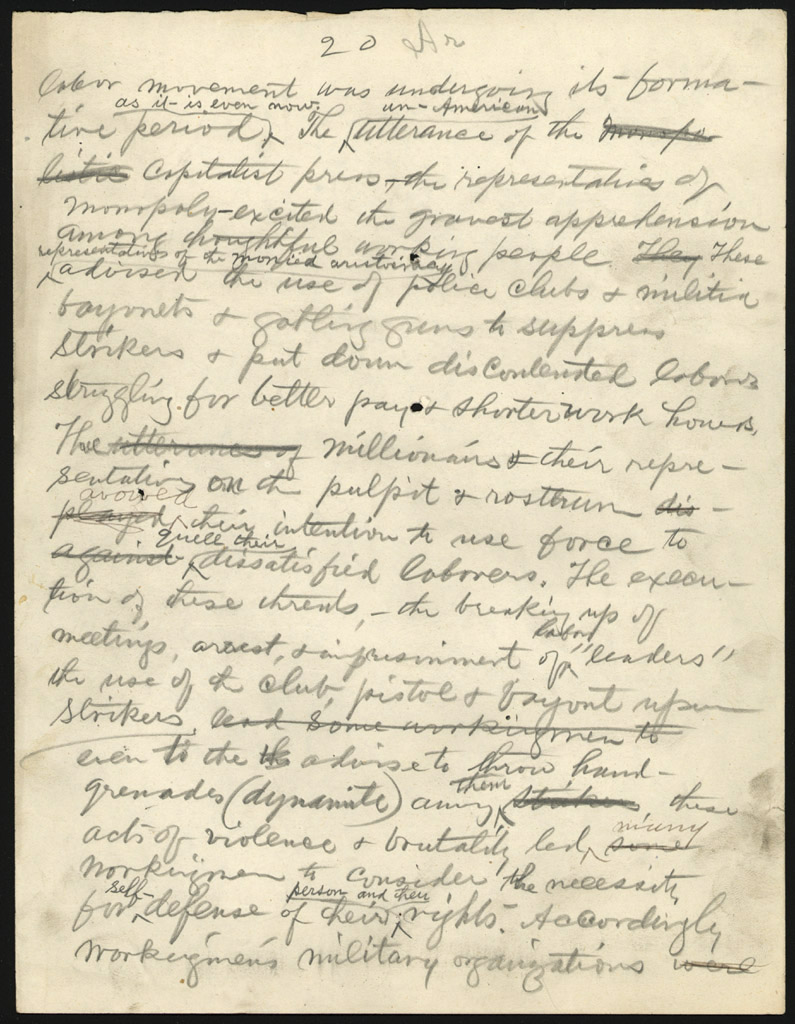 20 Ar
labor movement was undergoing its forma-
as it is even now. un-American
tive period, The utterance of the monopo-
listic Capitalist press, the representatives of
monopoly-excited the gravest apprehension
among thoughtful working people. They These
representatives of the monied aristocracy
advised the use of police clubs & militia
bayonets & gatling guns to suppress
strikers & put down discontented laborers
struggling for better pay & shorter work hours.
The utterances of millionairs & their repre-
sentatives on the pulpit & rostrum dis-
avowed
played their intention to use force to
quell their
against dissatisfied laborers. The execu-
tion of these threats, - the breaking up of
labor
meetings, arrest, & imprisonment of "leaders"
the use of the club pistol & bayont upon
strikers, lead some workingmen to
even to the advise to throw hand-
them
grenades (dynamite) among strikers these
many
acts of violence & brutality led some
workingmen to consider the necessity
self- person and their
for defense of their rights. Accordingly
workingmen's military organizations were